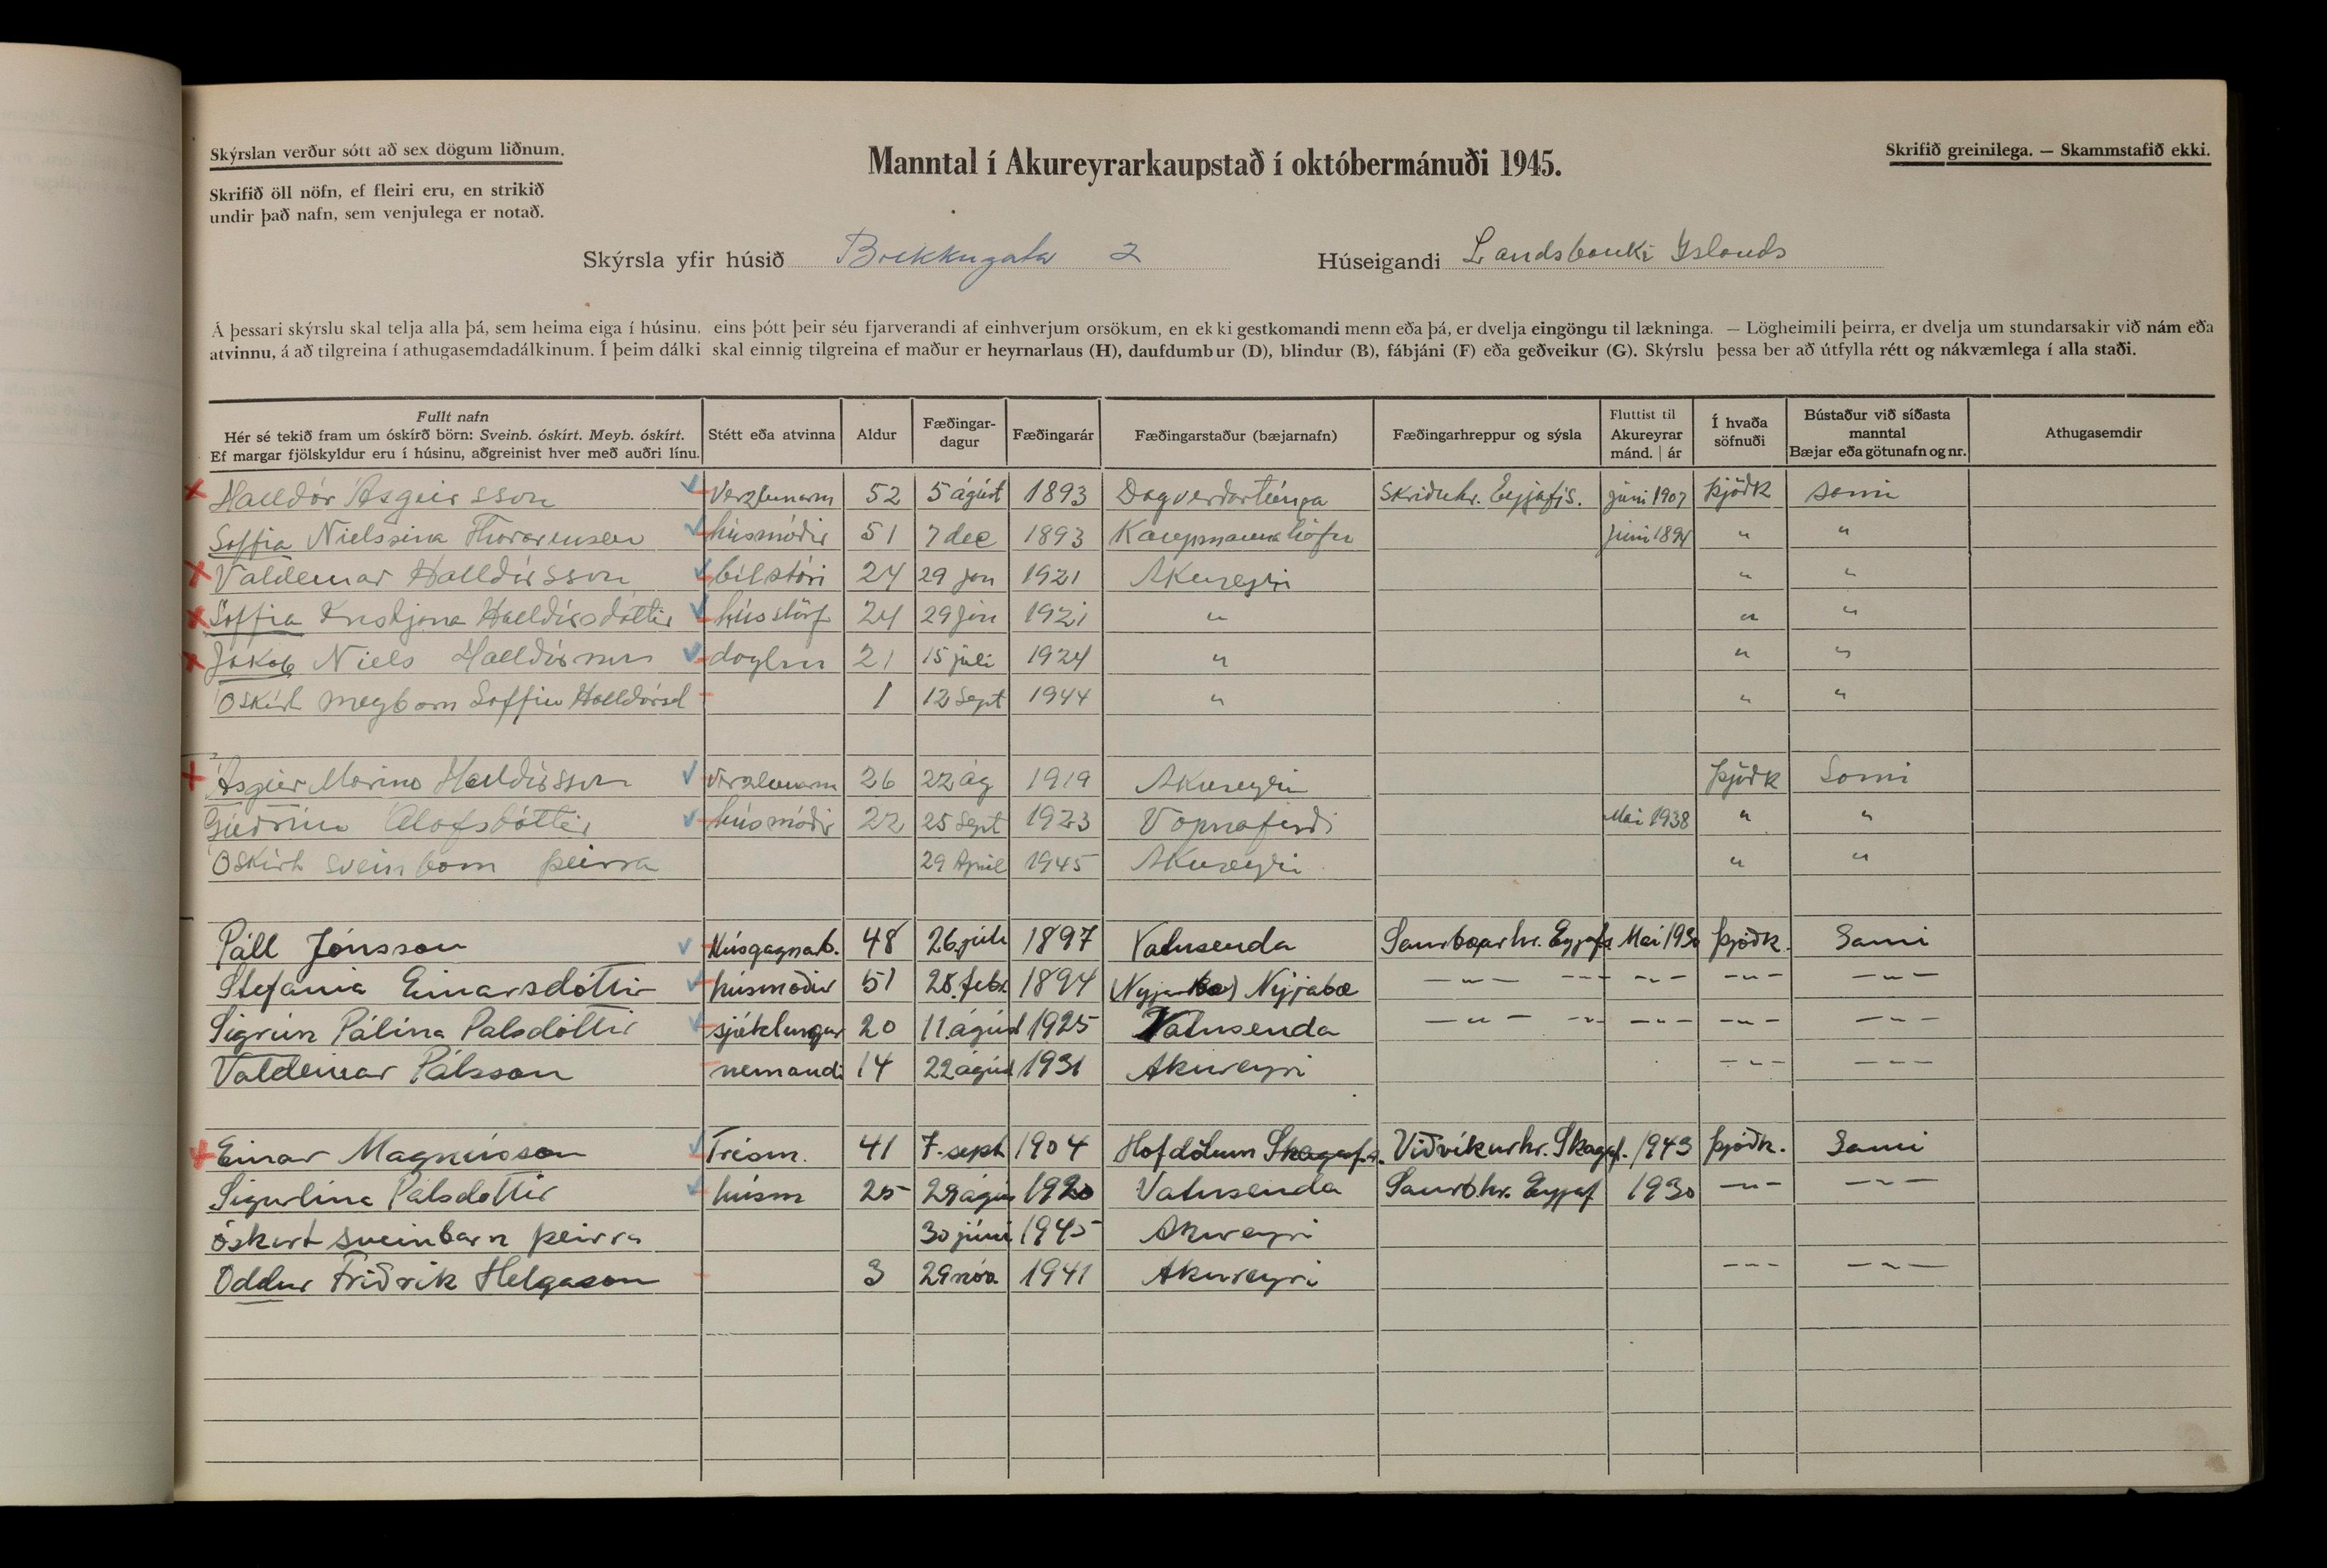 Skýrslan verður sótt að sex dögum liðnum.
Skrifið öll nöfn, ef fleiri eru, en strikið
undir það nafn, sem venjulega er notað.
Manntal í Akureyrarkaupstað í októbermánuði 1945.
Skrifið greinilega. — Skammstafið ekki.
Skýrsla yfir húsið Brekkugata 2 Húseigandi Landsbanki Islands
Á þessari skýrslu skal telja alla þá, sem heima eiga í húsinu, eins þótt þeir séu fjarverandi af einhverjum orsökum, en ekki gestkomandi menn eða þá, er dvelja eingöngu til lækninga. — Lögheimili þeirra, er dvelja um stundarsakir við nám eða
atvinnu, á að tilgreina í athugasemdadálkinum. Í þeim dálki skal einnig tilgreina ef maður er heyrnarlaus (H), daufdumbur (D), blindur (B), fábjáni (F) eða geðveikur (G). Skýrslu þessa ber að útfylla rétt og nákvæmlega í alla staði.
Fullt nafn
Hér sé tekið fram um óskírð börn: Sveinb. óskírt. Meyb. óskírt.
Ef margar fjölskyldur eru í húsinu, aðgreinist hver með auðri línu.
Stétt eða atvinna
Aldur
Fæðingar-
dagur
Fæðingarár
Fæðingarstaður (bæjarnafn)
Fæðingarhreppur og sýsla
Fluttist til
Akureyrar
mánd. | ár
Í hvaða
söfnuði
Bústaður við síðasta
manntal
Bæjar eða götunafn og nr.
Athugasemdir
Halldór Asgeirsson Verzlunarm 52 5 ágúst 1893 Dagverdartúnga Skriduhr. Eyjafjs. júni 1907 Þjóðk sami
Soffia Nielssina Thorarensen húsmóðir 51 7 dec 1893 Kaupmannahöfn Júni 1894 " "
Valdemar Halldórsson bílstóri 24 29 jan 1921 Akureyri " "
Soffia Kristjana Halldórsdóttir hússtörf 24 29 jan 1921 " " "
Jakob Niels Halldórsson daglm 21 15 júli 1924 " " "
Oskírt meybarn Soffiu Halldórsd 1 12 Sept 1944 " " "
Asgeir Marino Halldórsson Verzlunarm 26 22 ág 1919 Akureyri Þjóðk Sami
Gúdrún Ólafsdóttir húsmóðir 22 25 Sept 1923 Vopnafirdi Mai 1938 " "
Oskírt sveinbarn þeirra 29 Apríl 1945 Akureyri " "
Páll Jónsson Húsgagnab. 48 26. júlí 1897 Vatnsenda Saurbæjarhr. Eyjafs. Maí 1930 Þjóðk. Sami
Stefania Einarsdóttir húsmóðir 51 28. febr. 1894 Nýjabæ — " — — " — — " — — " — — " —
Sigrún Pálína Palsdóttir sjúklingur 20 11. ágúst 1925 Vatnsenda — " — — " — — " — — " — — " —
Valdemar Pálsson nemandi 14 22 ágúst 1931 Akureyri — " — — " —
Einar Magnússon Trésm. 41 7. sept 1904 Hofdölum Skagafs. Viðvíkurhr. Skagaf. 1943 Þjóðk. Sami
Sigurlína Pálsdóttir húsm 25 29 ágús 1920 Vatnsenda Saurb.hr. Eyjaf 1930 — " — — " —
óskírt sveinbarn þeirra 30 júní 1945 Akureyri
Oddur Friðrik Helgason 3 29 nóv. 1941 Akureyri — " — — " —